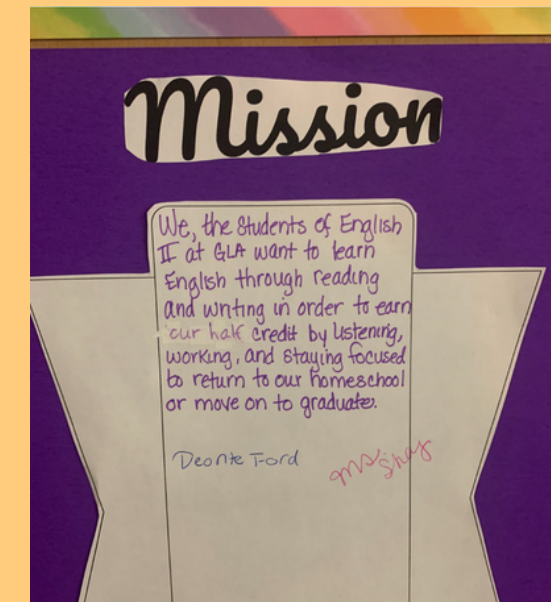 Mission
We, the Students of English
II at GLA want to learn
English through reading
and writing in order to earn
our half credit by listening,
working, and staying focused
to return to our homeschool
or move on to graduate.
Deonte Ford
Ms Shay